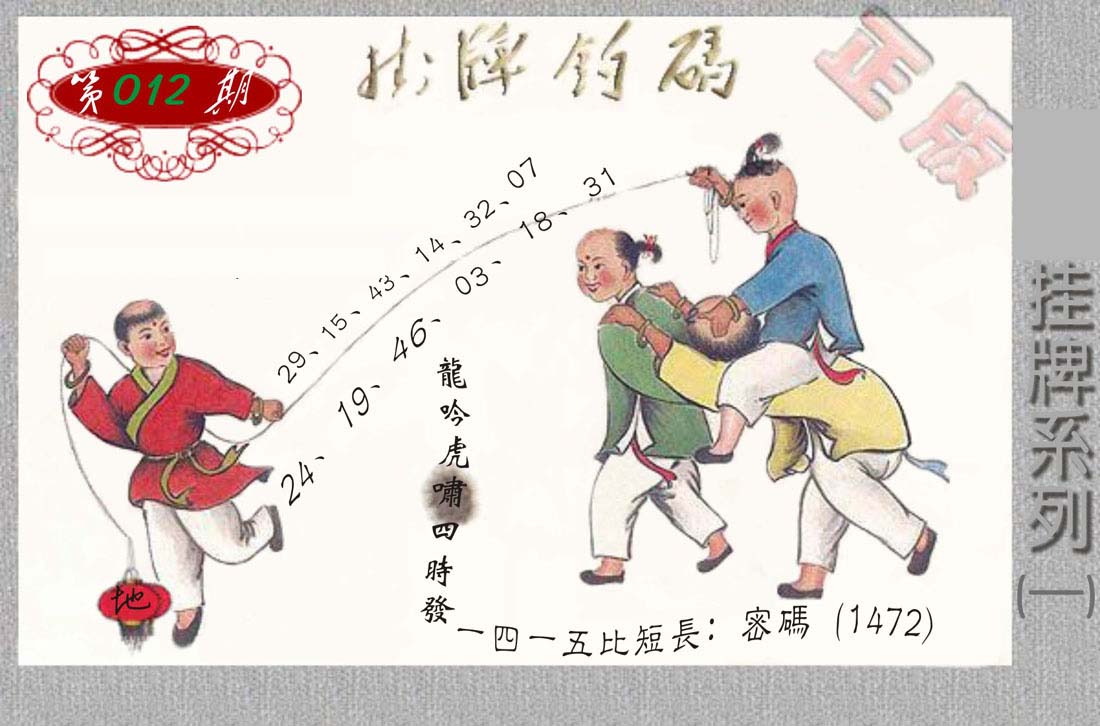 第012期
掛牌釣碼
正版
29、15、43、14、32、07
24、19、46、03、18、31
龍吟虎嘯四時發
一四一五比短長：密碼（1472）
地
挂牌系列（一）